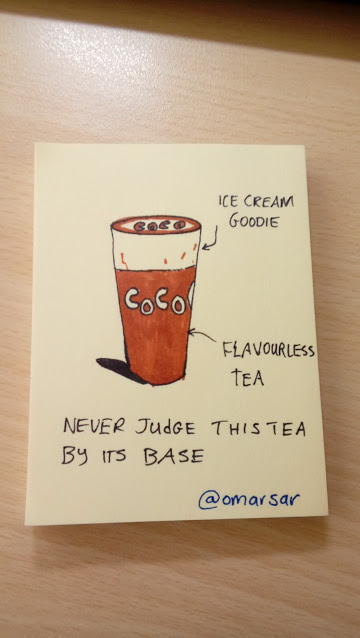 ICE CREAM
GOODIE
COCO
COCO
FLAVOURLESS
TEA
NEVER JUDGE THIS TEA
BY ITS BASE
@omarsar